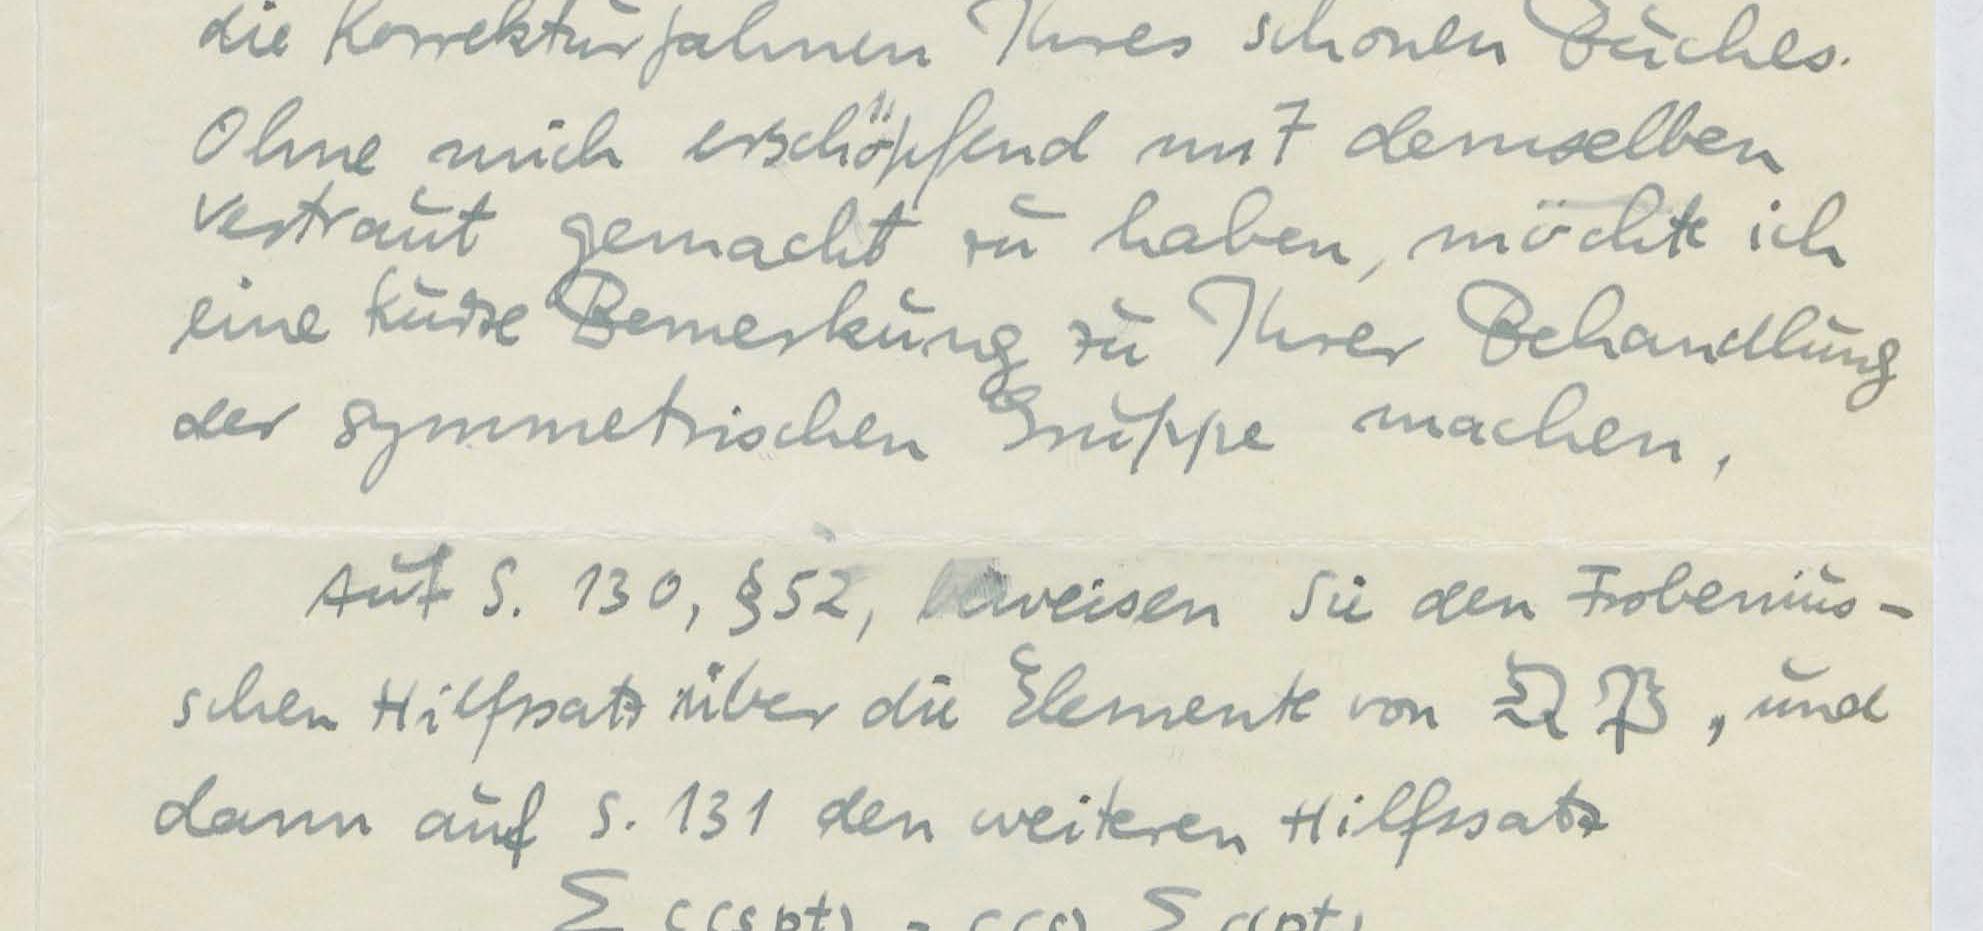 die Korrekturfahnen Ihres schönen Buches.
Ohne mich erschöpfend mit demselben
vertraut gemacht zu haben, möchte ich
eine kurze Bemerkung zu Ihrer Behandlung
der symmetrischen Gruppe machen,
Auf S. 130, §52, beweisen Sie den Frobenius-
schen Hilfssatz über die Elemente von 𝔔 𝔓, und
dann auf S. 131 den weiteren Hilfssatz